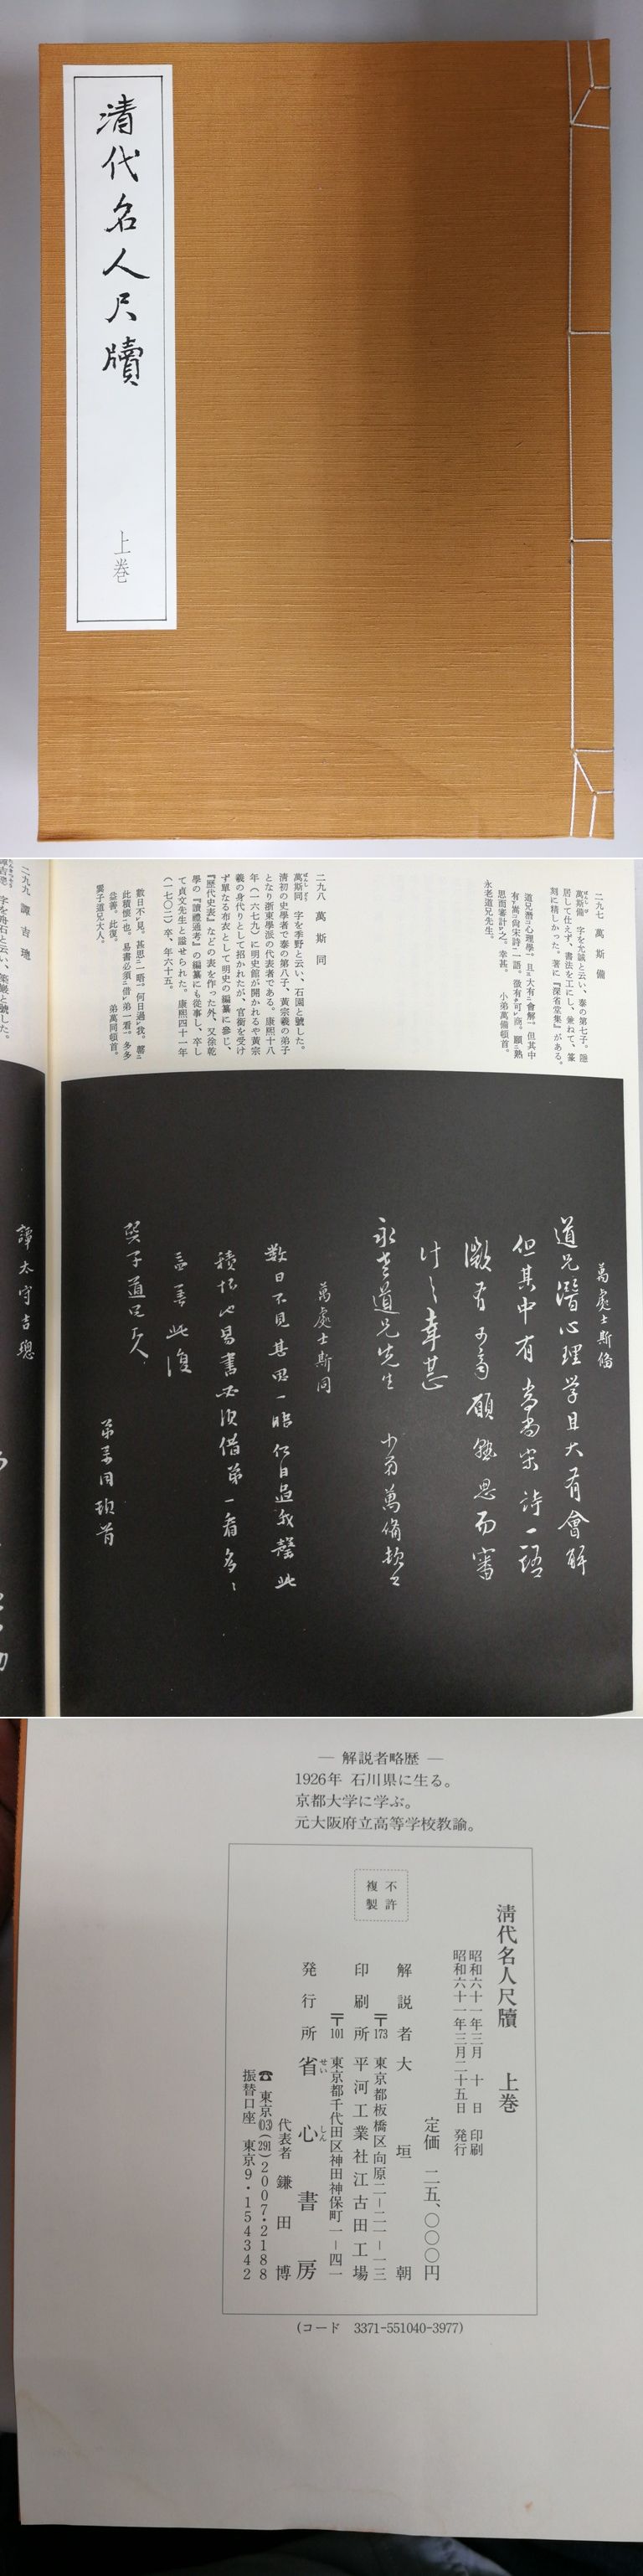 清代名人尺牘
上巻
二九七　萬斯備
萬斯備　字を允誠と云い、泰の第七子。隱
居して仕えず、書法を工にし、兼ねて、篆
刻に精しかった。著に『深省堂集』がある。
道兄潛心理學、且大有會解、但其中
有萬尚宋詩一語。微有可商。願熟
思而審計之。幸甚。　小弟萬備頓首。
永老道兄先生。
二九八　萬斯同
萬斯同　字を季野と云い、石園と號した。
清初の史學者で泰の第八子、黃宗羲の弟子
となり浙東學派の代表者である。康熙十八
年（一六七九）に明史館が開かれるや黃宗
羲の身代りとして招かれたが、官銜を受け
ず單なる布衣として明史の編纂に參じ、
『歷代史表』などの表を作った外、又徐乾
學の『讀禮通考』の編纂にも從事し、卒し
て貞文先生と諡せられた。康熙四十一年
（一七〇二）卒、年六十五。
數日不見。甚思一晤。何日過我。罄
此積懷也。易書必須借弟一看。多多
益善。此復。　弟萬同頓首。
道兄大人。
二九九　譚吉璁
字を舟石と云い、築巖と號した。
萬處士斯備
道兄潛心理学且大有會解
但其中有萬尚宋詩一語
微有可商願熟思而審
计之幸甚
永老道兄先生　小弟萬備頓首
萬處士斯同
數日不見甚思一晤何日過我罄此
積怀也易書必須借弟一看多々
益善此復
道兄大人
弟萬同頓首
譚太守吉璁
― 解説者略歴 ―
1926年 石川県に生る。
京都大学に学ぶ。
元大阪府立高等学校教諭。
不許
複製
清代名人尺牘　上巻
昭和六十一年三月　十　日　印刷
昭和六十一年三月二十五日　発行
定価　二五、〇〇〇円
解説者　大垣　朝
〒173　東京都板橋区向原二－二一－一三
印刷所　平河工業社江古田工場
〒101　東京都千代田区神田神保町一－四一
発行所　省心書房
せいしん
代表者　鎌田　博
☎ 東京(03)(291)2007・2188
振替口座　東京9・154342
(コード　3371-551040-3977)